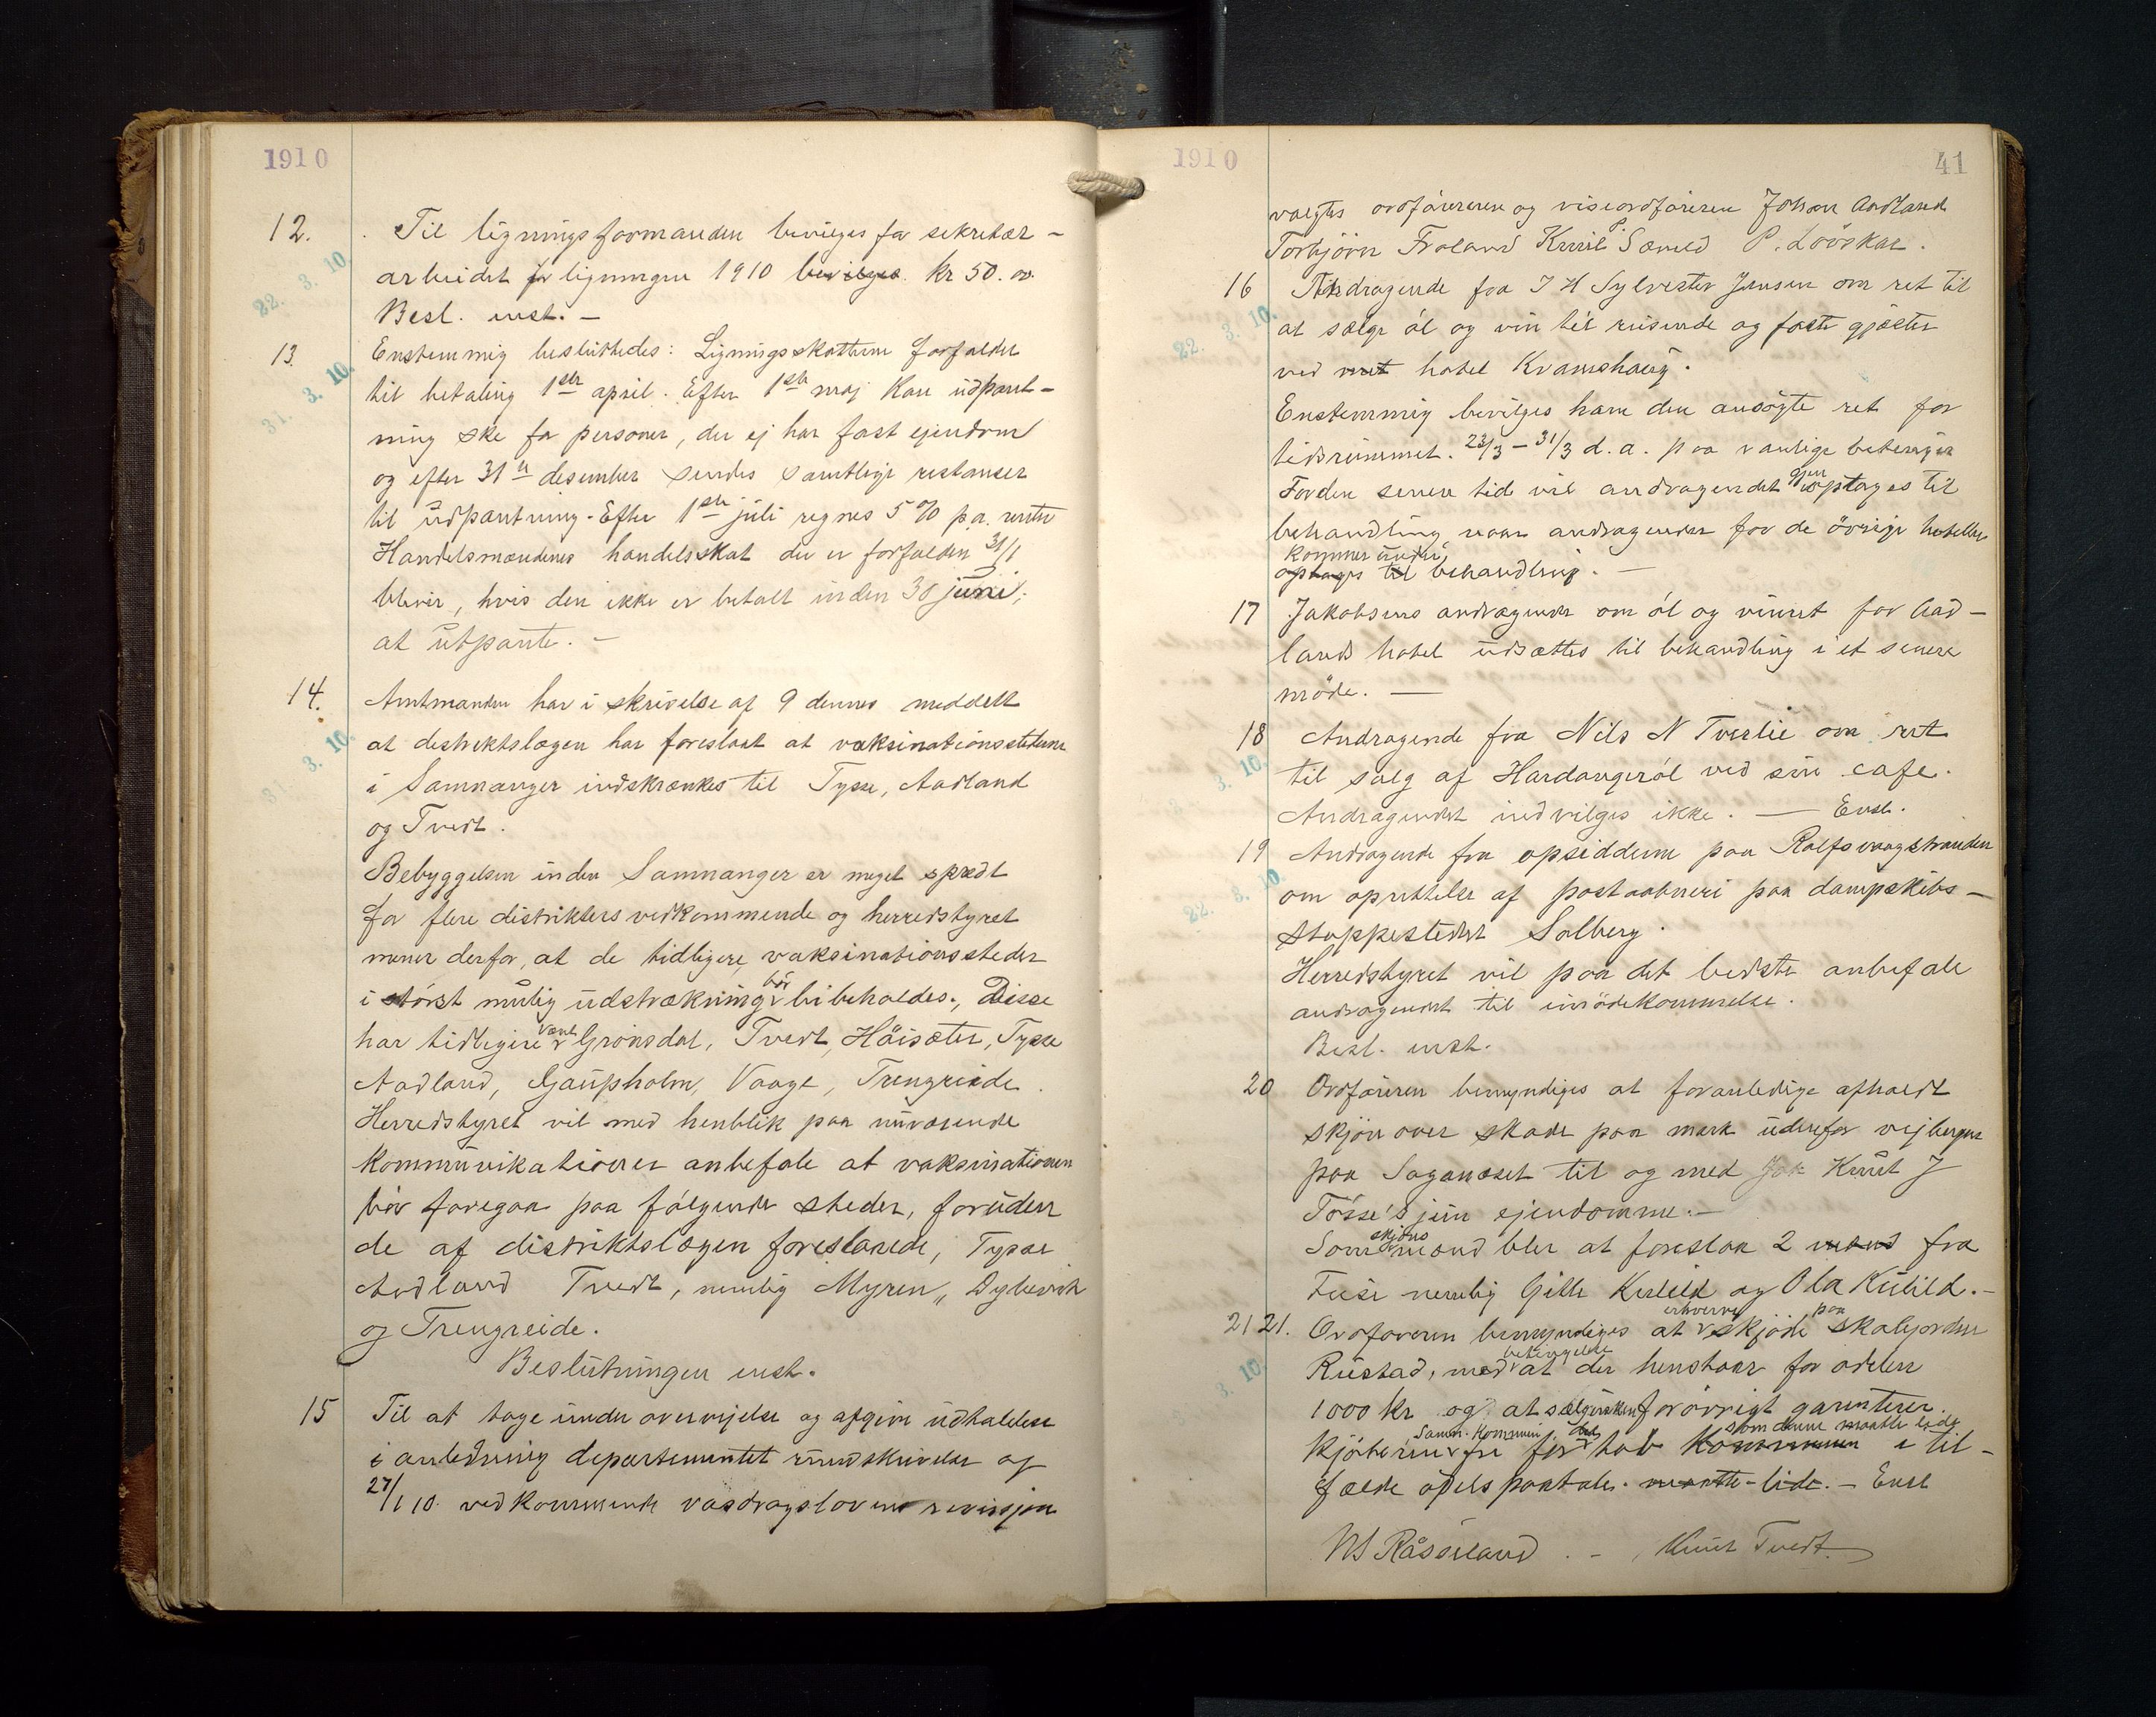 1910
12. Til ligningsformanden bevilges for sekretær-
22. 3. 10.
arbeidet for ligningen 1910 bevilges kr 50.oo
Besl. enst. –
13. Enstemmig besluttedes: Ligningsskatterne forfalder
31. 3. 10.
til betaling 1ste april. Efter 1ste maj kan udpant-
ning ske for personer, der ej har fast ejendom
og efter 31te desember sendes samtlige restanser
til udpantning. Efter 1ste juli regnes 5 % p.a. rente
Handelsmændenes handelsskat der er forfalden 31/1
bliver, hvis den ikke er betalt inden 30 juni,
at utpante. –
14. Amtmanden har i skrivelse af 9 dennes meddelt
3. 10.
at distriktslægen har foreslaat at vaksinationsstederne
i Samnanger indskrænkes til Tysse, Aadland
og Tvedt.
Bebyggelsen inden Samnanger er meget spredt
for flere distrikters vedkommende og herredstyret
mener derfor, at de tidligere vaksinationssteder
i störst mulig udstrækning bör bibeholdes. Disse
har tidligere vært Grönsdal, Tvedt, Höisæter, Tysse
Aadland, Gaupholm, Vaage, Trengreide.
Herredstyret vil med henblik paa nuværende
kommunikationer anbefale at vaksinationen
bör foregaa paa fölgende steder, foruden
de af distriktslægen foreslaaede, Tysse
Aadland Tvedt, nemlig Myren, Dybevik
og Trengreide.
Beslutningen enst.
15 Til at tage under overvejelse og afgive udtalelse
i anledning departementet rundskrivelse af
27/1 10. vedkommende vasdragslovens revisjon
1910
41
valgtes ordföreren og viseordföreren Johan Aadland
Torbjörn Fröland Knut P. Sæveld P. Lövskar.
16 Andragende fra J H Sylvester Jensen om ret til
22. 3. 10.
at sælge öl og vin til reisende og faste gjæster
ved hotel Kvamshaug.
Enstemmig bevilges ham den ansögte ret for
tidsrummet 23/3 – 31/3 d.a. paa vanlige betingelser
For den senere tid vil andragendet igjen optages til
behandling, naar andragender for de övrige hoteller
kommer under
optages til behandling. –
17 Jakobsens andragende om öl og vinret for Aad-
lands hotel udsættes til behandling i et senere
möde. –
18 Andragende fra Nils N Tverlie om ret
3. 10.
til salg af Hardangeröl ved sin cafe.
Andragendet indvilges ikke. – Enst.
19 Andragende fra opsidderne paa Rolfsvaagstranden
22. 3. 10.
om oprettelse af postaabneri paa dampskibs-
stoppestedet Solberg.
Herredstyret vil paa det bedste anbefale
andragendet til imödekommelse.
Besl. enst.
20 Ordföreren bemyndiges at foranledige afholdt
skjön over skade paa mark udenfor vejbergne
paa Saganeset til og med Knut J
Tösse's jun ejendomme. –
Som skjöns mænd blev at foreslaa 2 mænd fra
Fuse nemlig Gitle Kuleild og Ola Kulild. –
21 21. Ordföreren bemyndiges at erhverve skjöde paa skolejorden
3. 10.
Rustad, med betingelse at der henstaar for odelen
1000 kr og at sælgersken forövrigt garanterer
Samn. kommun det som denne maatte lide
kjöberinden fri for tab kommunen i til-
fælde odelspaatale. maatte lide. – Enst
NS Råsseland . – Knut Tvedt.